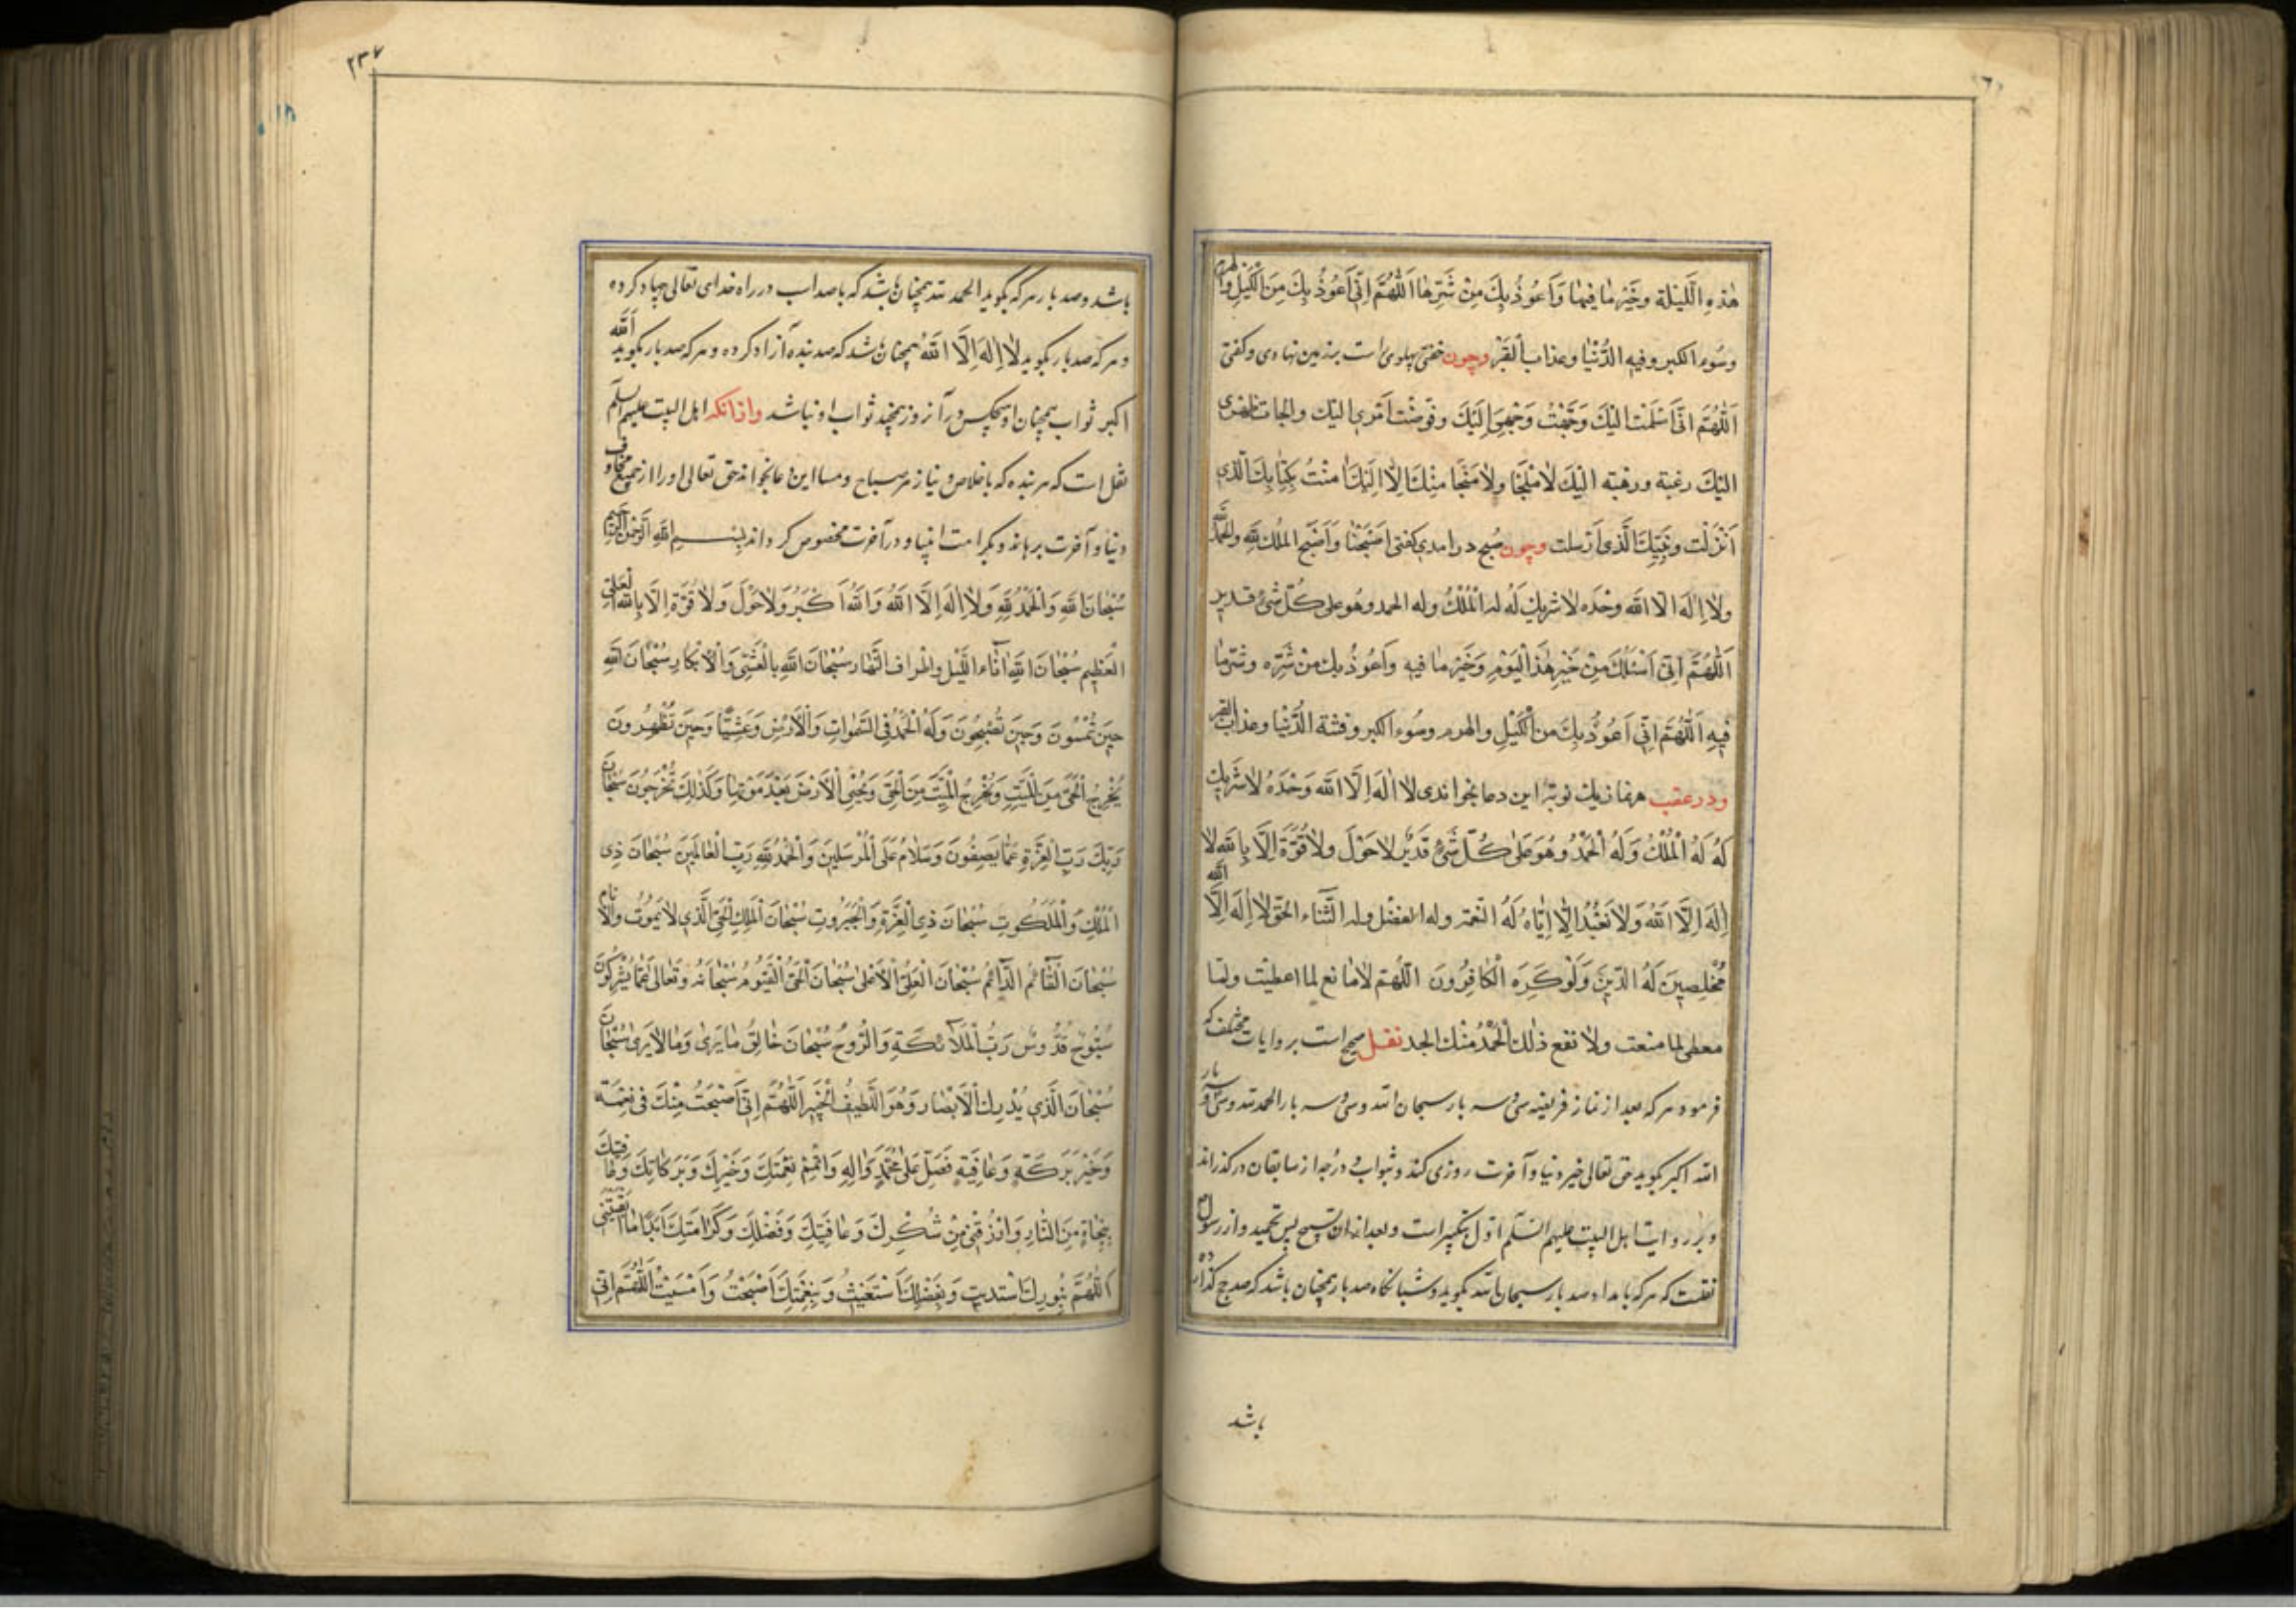 هٰذِهِ اللَّیْلَةِ وَخَیْرَ مٰا فیهٰا وَاَعُوذُ بِكَ مِنْ شَرِّهٰا اَللّٰهُمَّ اِنّی اَعُوذُ بِكَ مِنَ الْكَیَلِ وَالهرم
وَسُوءِ الکبر وفیه الدُّنْیٰا وعذاب اَلقَبْر وچون خفتی پهلوی راست بر زمین نهادی وکفتی
اَللّٰهُمَّ انّی اَسْلَمْت اِلیْكَ وَوَجَّهْتُ وَجْهِیَ اِلَیْكَ وَفَوَّضْت اَمْری الیك والجات ظهری
الیْكَ رغبة ورهبته الیْكَ لاٰمَلْجَأ ولاٰمَنْجٰا مِنْكَ اِلاّٰ اِلَیْكَ اٰمَنْتُ بِكِتٰابِكَ اَلّذی
اَنْزَلْت ونَبِیِّكَ الَّذی اَرْسلت وچون صُبح درامدی کفتی اَصْبَحْنٰا وَاَصْبَحَ المُلك لِلّٰهِ وَالحَمْدُ لله
ولاٰ اِلٰهَ اِلاّ الله وحْدَه لاٰشریك لَهُ له الْمُلْكُ وله الحمد وهُو علی كُلّ شئ قدیر
اَللّٰهُمَّ اِنّی اَسْئَلُكَ مِنْ خَیْرِ هٰذَا الْیَوْمِ وَخَیْرَ مٰا فیهِ وَاَعُوذُ بِكَ مِنْ شَرِّه وشرّ مٰا
فیهِ اَللّٰهُمَّ اِنّی اَعُوذُ بِكَ مِنَ الْكَیَلِ والهرم وسُوء الکبر وفتنة الدُّنْیٰا وعذاب القبر
ودر عقب هر نماز یك نوبة این دعا بخواندی لاٰ اِلٰهَ اِلاَّ الله وَحْدَهُ لاٰشَریك
لَهُ لَهُ الْمُلْكُ وَلَهُ الْحَمْدُ وَهُوَ عَلیٰ كُلِّ شَیْءٍ قَدیرٌ لاٰحَوْلَ ولاٰقُوَّةَ اِلاَّ بِاللهِ لاٰ
اِلٰهَ اِلاَّ اللهُ وَلاٰ نَعْبُدُ اِلاّٰ اِیّٰاهُ لَهُ النّعمة وله الفضْل وله الثَّنٰاء الحَقّ لاٰاِلٰهَ اِلاَّ الله
مُخْلِصینَ لَهُ الدّینَ وَلَوْ كَرِهَ الْكٰافِرُونَ اللّٰهُمّ لاٰمٰانع لما اعطیْت ولٰا
معطی لما منعت ولاٰ نفع ذٰلك اَلْحَمْدُ مِنْك الجد نقل صحیح است بروایات مختلف که
فرمود هر که بعد از نماز فریضه سی وسه بار سبحان الله وسی وسه بار الحمد لله وسی وسه بار
الله اکبر بکوید حق تعالی خیر دنیا وآخرت روزی کند وثواب ودرجه از سابقان درکذراند
وبر روایت اهل البیت علیهم السّلم اوّل تکبیر است وبعد ازان تسبیح پس تحمید واز رسول
نقلست که هر که بامداد صد بار سبحان الله بکوید وشبانکاه صد بار همچنان باشد که صد حج کذارده
باشد
۲۳۷
باشد وصد بار هر که بکوید الحمد لله همچنان باشد که با صد اسب در راه خدای تعالی جهاد کرده
وهر که صد بار بکوید لاٰاِلٰهَ اِلاَّ اللهُ همچنان باشد که صد بنده آزاد کرده وهر که صد بار بکوید اَللّٰه
اکبر ثواب همچنان او هیچکس در آنروز همچند ثواب او نباشد وازانکه اهل البیت علیهم السلم
نقل است که هر بنده که باخلاص ونیاز هر صباح ومسا این دعا بخواند حق تعالی اورا از جمیع مخاوف
دنیا وآخرت برهاند وبکرامت انبیا ودر آخرت مخصوص کرداند بِسْمِ اللهِ الرَّحْمٰنِ الرَّحیمِ
سُبْحٰانَ اللهِ وَالْحَمْدُ لِلّٰهِ وَلاٰاِلٰهَ اِلاَّ اللهُ وَاللهُ اَكْبَرُ وَلاٰحَوْلَ وَلاٰقُوَّةَ اِلاَّ بِاللهِ الْعَلِیِّ
الْعَظیمِ سُبْحٰانَ اللهِ اٰنٰاءَ اللَّیْلِ واطراف النَّهٰار سُبْحٰانَ اللهِ بِالْعَشِیِّ وَالْاِبْكٰارِ سُبْحٰانَ اللهِ
حینَ تُمْسُونَ وَحینَ تُصْبِحُونَ وَلَهُ الْحَمْدُ فِی السَّمٰوٰاتِ وَالْاَرْضِ وَعَشِیًّا وَحینَ تُظْهِرُونَ
یُخْرِجُ الْحَیَّ مِنَ الْمَیِّتِ وَیُخْرِجُ الْمَیِّتَ مِنَ الْحَیِّ وَیُحْیِی الْاَرْضَ بَعْدَ مَوْتِهٰا وَكَذٰلِكَ تُخْرَجُونَ سُبْحٰانَ
رَبِّكَ رَبِّ الْعِزَّةِ عَمّٰا یَصِفُونَ وَسَلاٰمٌ عَلَی الْمُرْسَلینَ وَالْحَمْدُ لِلّٰهِ رَبِّ الْعٰالَمینَ سُبْحٰانَ ذِی
الْمُلْكِ وَالْمَلَكُوتِ سُبْحٰانَ ذِی الْعِزَّةِ وَالْجَبَرُوتِ سُبْحٰانَ الْمَلِكِ الْحَیِّ الَّذی لاٰیَمُوتُ وَلاٰینام
سُبْحٰانَ الْقٰائِمِ الدّٰائِمِ سُبْحٰانَ الْعَلِیِّ الْاَعْلیٰ سُبْحٰانَ الْحَیِّ الْقَیُّومِ سُبْحٰانَهُ وَتَعٰالیٰ عَمّٰا یُشْرِكُونَ
سُبُّوحٌ قُدُّوسٌ رَبُّ الْمَلاٰئِكَةِ وَالرُّوحِ سُبْحٰانَ خٰالِقِ مٰا یَریٰ وَمٰا لاٰیَریٰ سُبْحٰانَ
سُبْحٰانَ الَّذی یُدْرِكُ الْاَبْصٰارَ وَهُوَ اللَّطیفُ الْخَبیرُ اَللّٰهُمَّ اِنّی اَصْبَحْتُ مِنْكَ فی نِعْمَةٍ
وَخَیْرٍ بَرَكَةٍ وَعٰافِیَةٍ فَصَلِّ عَلیٰ مُحَمَّدٍ وَاٰلِهِ وَاَتْمِمْ نِعْمَتَكَ وَخَیْرَكَ وَبَرَكٰاتِكَ وَعٰافِیَتَكَ
بِنَجٰاةٍ مِنَ النّٰارِ وَارْزُقْنی مِنْ شُكْرِكَ وَعٰافِیَتِكَ وَفَضْلِكَ وَكَرٰامَتِكَ اَبَدًا مٰا اَبْقَیْتَنی
اَللّٰهُمَّ بِنُورِكَ اهْتدیت وَبِفَضْلِكَ اَسْتَغْنَیْتُ وَبِنِعْمَتِكَ اَصْبَحْتُ وَاَمْسَیْتُ اَللّٰهُمَّ اِنّی